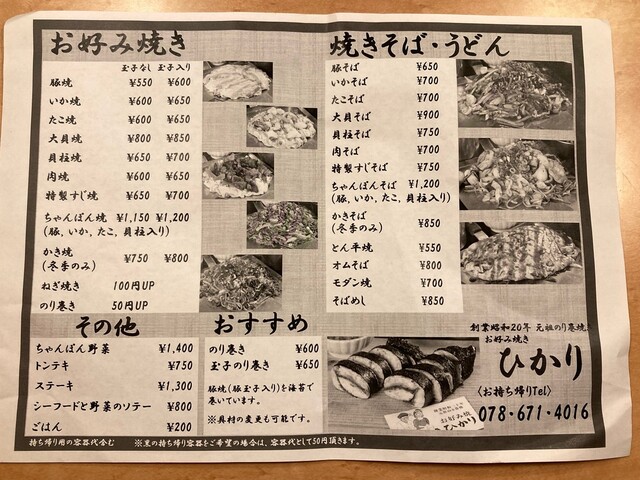 お好み焼き
玉子なし 玉子入り
豚焼 ¥550 ¥600
いか焼 ¥600 ¥650
たこ焼 ¥600 ¥650
大貝焼 ¥800 ¥850
貝柱焼 ¥650 ¥700
肉焼 ¥600 ¥650
特製すじ焼 ¥650 ¥700
ちゃんぽん焼 ¥1,150 ¥1,200
(豚, いか, たこ, 貝柱入り)
かき焼 ¥750 ¥800
(冬季のみ)
ねぎ焼き 100円UP
のり巻き 50円UP
焼きそば・うどん
豚そば ¥650
いかそば ¥700
たこそば ¥700
大貝そば ¥900
貝柱そば ¥750
肉そば ¥700
特製すじそば ¥750
ちゃんぽんそば ¥1,200
(豚, いか, たこ, 貝柱入り)
かきそば ¥850
(冬季のみ)
とん平焼 ¥550
オムそば ¥800
モダン焼 ¥700
そばめし ¥850
その他
ちゃんぽん野菜 ¥1,400
トンテキ ¥750
ステーキ ¥1,300
シーフードと野菜のソテー ¥800
ごはん ¥200
おすすめ
のり巻き ¥600
玉子のり巻き ¥650
豚焼(豚玉子入り)を海苔で
巻いています。
※具材の変更も可能です。
創業昭和20年 元祖のり巻焼き
お好み焼き
ひかり
〈お持ち帰りTel〉
078-671-4016
お好み焼
ひかり
持ち帰り用の容器代含む ※黒の持ち帰り容器をご希望の場合は、容器代として50円頂きます。